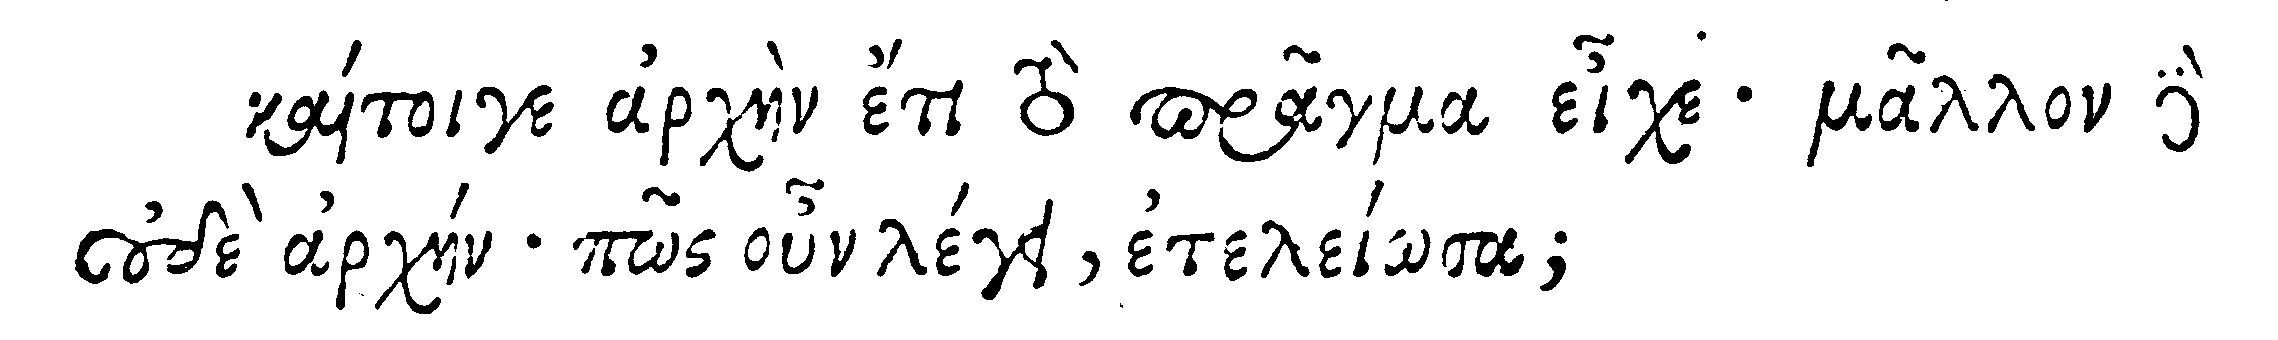 καίτοιγε ἀρχὴν ἔτι τὸ πρᾶγμα εἶχε· μᾶλλον δὲ
οὐδὲ ἀρχήν· πῶς οὖν λέγει, ἐτελείωσα;